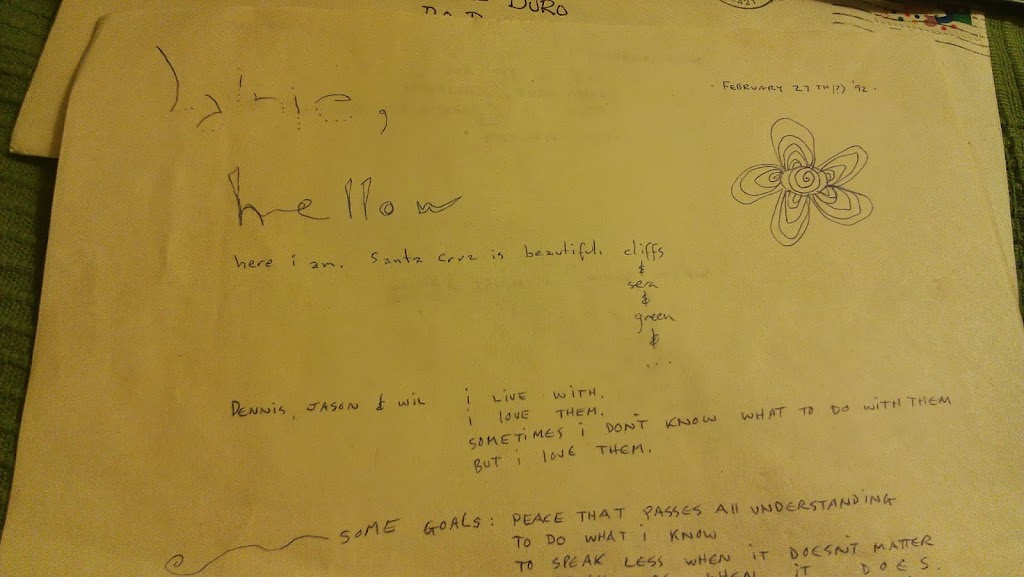 DURO
FEBRUARY 27TH(?) '92.
hellow
here i am. Santa Cruz is beautiful. cliffs
&
sea
&
green
&
...
DENNIS, JASON & WIL i LIVE WITH.
i LOVE THEM.
SOMETIMES i DON'T KNOW WHAT TO DO WITH THEM
BUT i LOVE THEM.
SOME GOALS: PEACE THAT PASSES All UNDERSTANDING
TO DO WHAT i KNOW
TO SPEAK LESS WHEN iT DOESN'T MATTER
WHEN iT DOES.